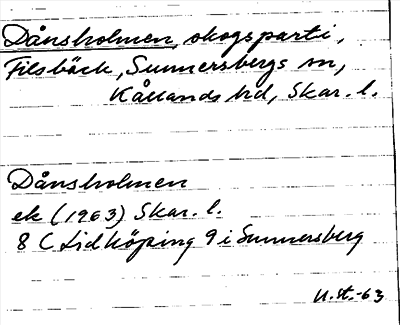 Dånsholmen, skogsparti,
Filsbäck, Sunnersbergs sn,
Kållands hd, Skar. l.
Dånsholmen
ek (1963) Skar. l.
8 C Lidköping 9 i Sunnersberg
U.st.-63